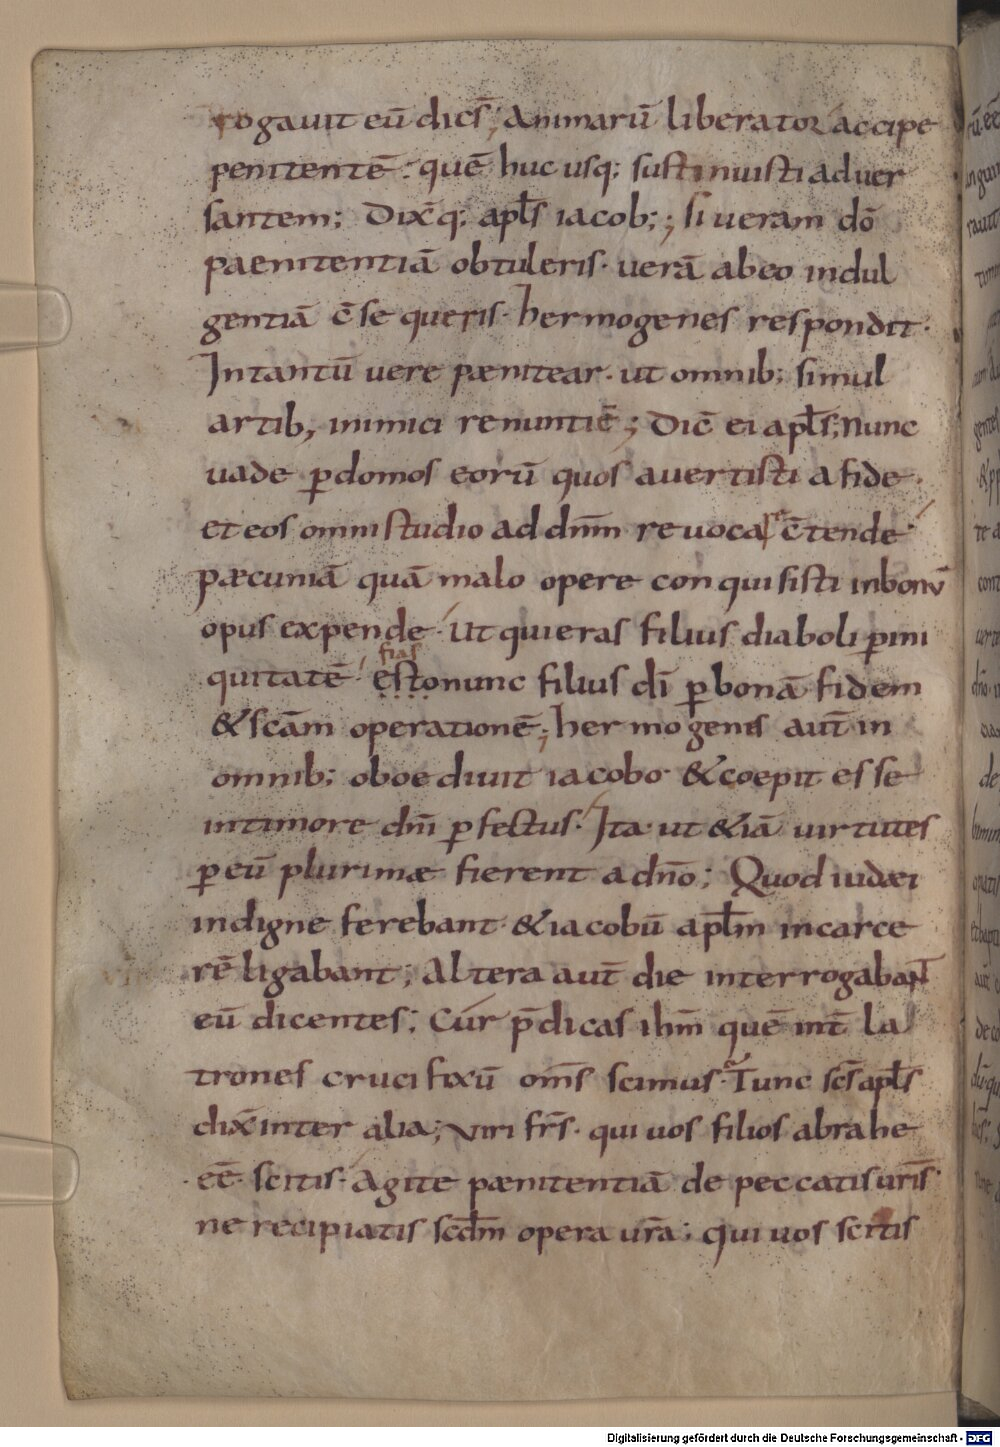 rogauit eū dicēs; Animarū liberator accipe
penitentē. quē huc usq; sustinuisti aduer
santem; Dixq; apl̄s iacob; si ueram dō
paenitentiā obtuleris. uerā ab eo indul
gentiā c̄sequeris. hermogenes respondit.
Intantū uere pænitear. ut omnib; simul
artib; inimici renuntiē; Dic̄ ei apl̄s; Nunc
uade ꝑ domos eorū quos auertisti a fide.
et eos omni studio ad dn̄m reuocare c̄tende
pæcuniā quā malo opere conquisisti in bonū
opus expende. Ut qui eras filius diaboli ꝑ ini
quitatē fias esto nunc filius dī ꝑ bonā fidem
& sc̄am operationē; hermogenis aut̄ in
omnib; oboediuit iacobo. & coepit esse
in timore dn̄i ꝑfectus. Ita ut & iā uirtutes
ꝑ eū plurimæ fierent a dn̄o; Quod iudæi
indigne ferebant. & iacobū apl̄m in carce
rē ligabant; Altera aut̄ die interrogabant
eū dicentes; Cur p̄dicas ihm̄ quē int̄ la
trones crucifixū om̄s scimus. Tunc sc̄s apl̄s
dix̄ inter alia; Viri fr̄s. qui uos filios abrahe
eē scitis. Agite pænitentiā de peccatis ur̄is
ne recipiatis scd̄m opera ur̄a; qui uos scitis
Digitalisierung gefördert durch die Deutsche Forschungsgemeinschaft - DFG